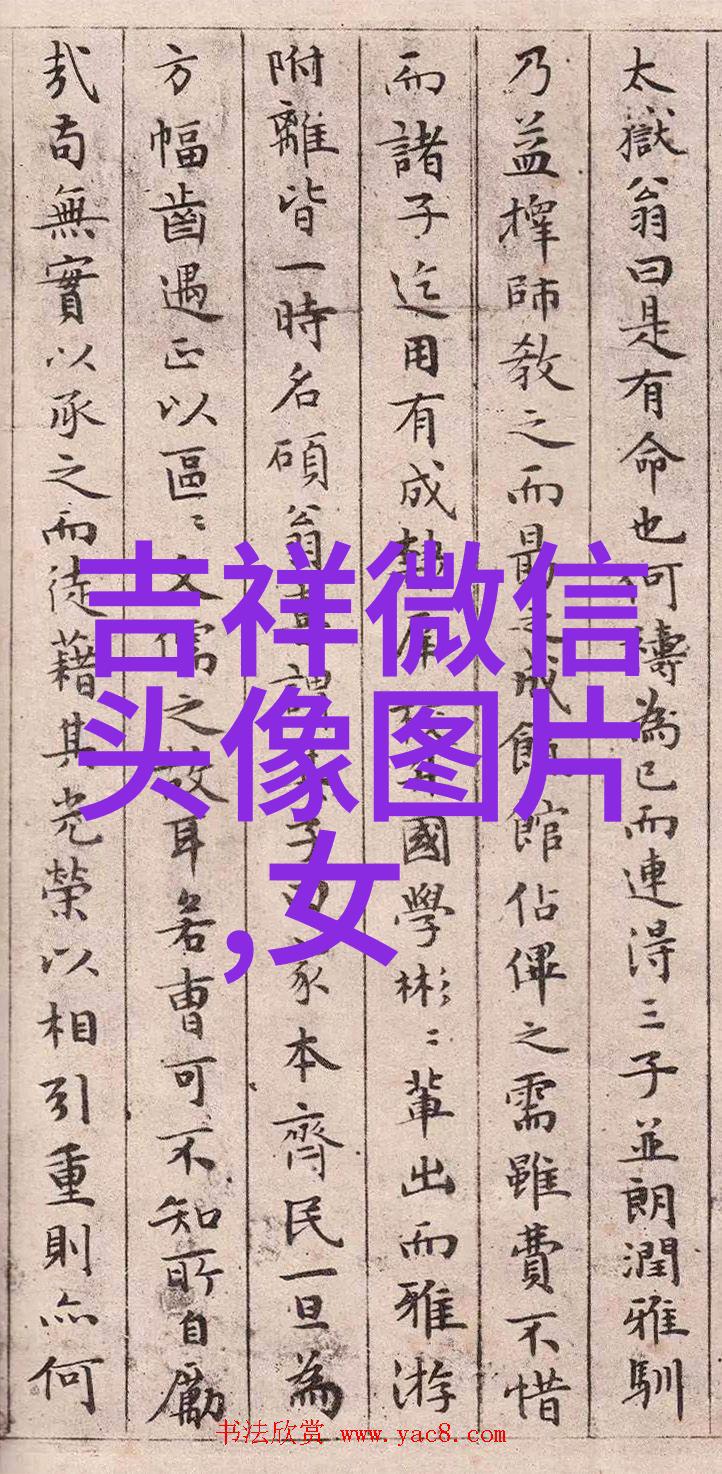 太嶽翁曰是有命也何 為已而連得三子並朗潤雅馴
乃益擇師教之而最 成 館佔僤之需雖費不惜
而諸子迄用有成 國學彬〻輩出而雅游
附離皆一時名碩翁 謂 子曰家本齊民一旦為
方幅齒遇正以區〻文儒之故耳若曹可不知所自勵
哉苟無實以承之而徒藉其光榮以相引重則亦何
吉祥微信
头像图片
,女
书法欣赏 www.yac8.com